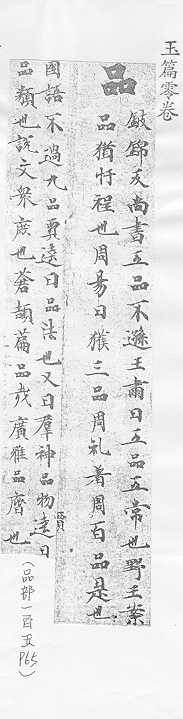 玉篇零卷
品
敀錦反尚書五品不遜王肅曰五品五常也野王案
品猶忖程也周易曰獲三品周礼羞用百品是也
國語不過九品賈逵曰品法也又曰羣神品物逵曰
賈
品類也說文衆庻也蒼頡萹品式廣雅品齊也
(品部一百五
P65)